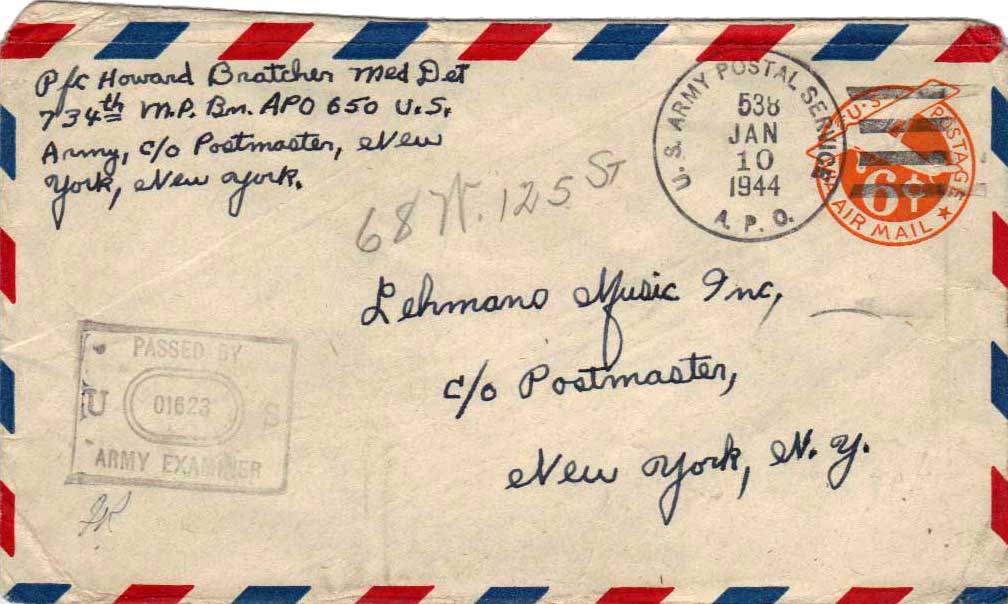 Pfc Howard Bratcher Med Det
734th M.P. Bn. APO 650 U.S.
Army, c/o Postmaster, New
York, New York.
U.S. ARMY POSTAL SERVICE
538
JAN
10
1944
A.P.O.
U.S. POSTAGE
6¢
VIA AIR MAIL
68 W. 125 St
Lehmans Music Inc,
c/o Postmaster,
New York, N.Y.
PASSED BY
U 01623 S
ARMY EXAMINER